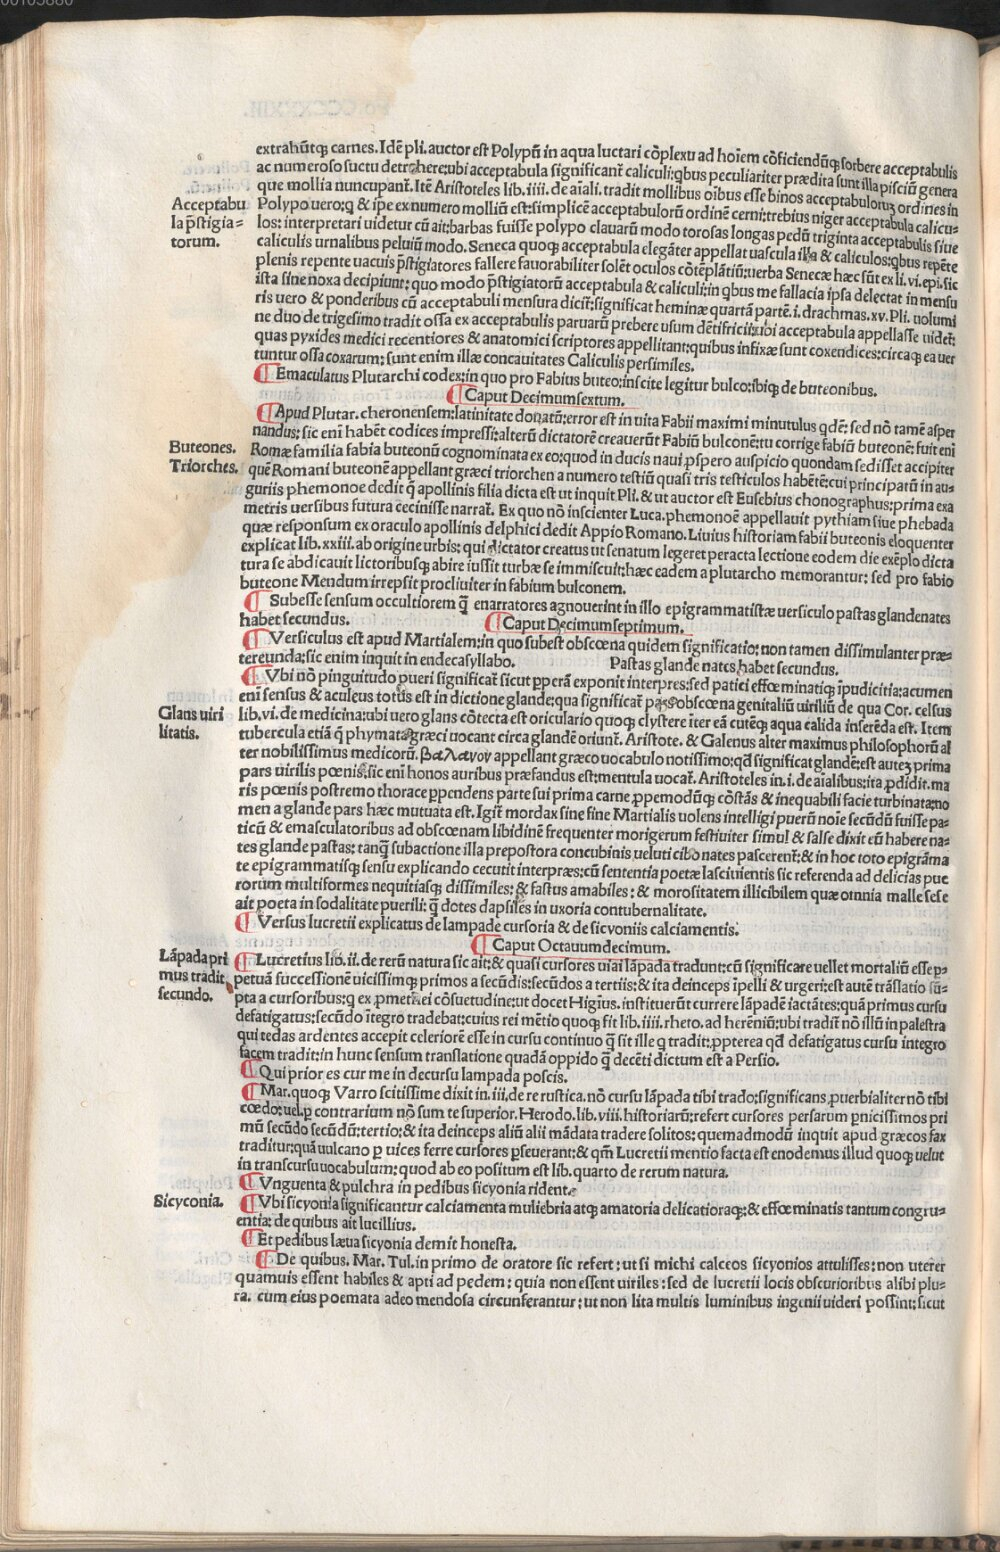 extrahūtq; carnes. Idē pli. auctor est Polypū in aqua luctari cōplexu ad hoiem cōficiendūq; sorbere acceptabulis
ac numeroso suctu detrahere: ubi acceptabula significant̄ caliculi: qbus peculiariter prædita sunt illa pisciū genera
que mollia nuncupant̄. Itē Aristoteles lib. iiii. de aīali. tradit mollibus oībus esse binos acceptabulorꝝ ordines in
Acceptabu
la p̄stigia=
torum.
Polypo uero: q & ipe ex numero molliū est: simplicē acceptabulorū ordinē cerni: trebius niger acceptabula calicu-
los: interpretari uidetur cū ait: barbas fuisse polypo clauarū modo torosas longas pedū triginta acceptabulis siue
caliculis urnalibus peluiū modo. Seneca quoq; acceptabula elegāter appellat uascula illa & caliculos: qbus repēte
plenis repente uacuis p̄stigiatores fallere fauorabiliter solēt oculos cōtēplātiū: uerba Senecæ hæc sūt ex li. vi. epi. sic
ista sine noxa decipiunt: quo modo p̄stigiatorū acceptabula & caliculi: in qbus me fallacia ipsa delectat in mensu
ris uero & ponderibus cū acceptabuli mensura dicit̄: significat heminæ quartā partē. i. drachmas. xv. Pli. uolumi
ne duo de trigesimo tradit ossa ex acceptabulis paruarū prebere usum dētifricii: ubi acceptabula appellasse uidet̄:
quas pyxides medici recentiores & anatomici scriptores appellitant: quibus infixæ sunt coxendices: circaq; ea uer
tuntur ossa coxarum: sunt enim illæ concauitates Caliculis persimiles.
¶ Emaculatus Plutarchi codex: in quo pro Fabius buteo: inscite legitur bulco: ibiq; de buteonibus.
¶ Caput Decimumsextum.
¶ Apud Plutar. cheronensem: latinitate donatū: error est in uita Fabii maximi minutulus qdē: sed nō tamē asper
nandus: sic eni habēt codices impressi: alterū dictatorē creauerūt Fabiū bulconē: tu corrige fabiū buteonē: fuit eni
Buteones.
Triorches.
Romæ familia fabia buteonū cognominata ex eo: quod in ducis naui ꝓspero auspicio quondam sedisset accipiter
quē Romani buteonē appellant græci triorchen a numero testiū quasi tris testiculos habētē: cui principatū in au-
guriis phemonoe dedit q̄ apollinis filia dicta est ut inquit Pli. & ut auctor est Eusebius chonographus: prima exa
metris uersibus futura cecinisse narrat̄. Ex quo nō inscienter Luca. phemonoē appellauit pythiam siue phebada
quæ responsum ex oraculo apollinis delphici dedit Appio Romano. Liuius historiam fabii buteonis eloquenter
explicat lib. xxiii. ab origine urbis: qui dictator creatus ut senatum legeret peracta lectione eodem die exēplo dicta
tura se abdicauit lictoribusq; abire iussit turbæ se immiscuit: hæc eadem a plutarcho memorantur: sed pro fabio
buteone Mendum irrepsit procliuiter in fabium bulconem.
¶ Subesse sensum occultiorem q̄ enarratores agnouerint in illo epigrammatistæ uersiculo pastas glande nates
habet secundus.
¶ Caput Decimumseptimum.
¶ Versiculus est apud Martialem: in quo subest obscœna quidem significatio: non tamen dissimulanter præ-
tereunda: sic enim inquit in endecasyllabo. Pastas glande nates habet secundus.
¶ Vbi nō pinguitudo pueri significat̄ sicut ꝑperā exponit interpres: sed patici effœminatiq; ipudicitia: acumen
eni sensus & aculeus totus est in dictione glande: qua significat̄ pars obscœna genitaliū uiriliū de qua Cor. celsus
Glans uiri
litatis.
lib. vi. de medicina: ubi uero glans cōtecta est oriculario quoq; clystere īter eā cutēq; aqua calida inserēda est. Item
tubercula etiā q̄ phymata græci uocant circa glandē oriunt̄. Aristote. & Galenus alter maximus philosophorū al
ter nobilissimus medicorū. βαλανον appellant græco uocabulo notissimo: qd̄ significat glandē: est auteʒ prima
pars uirilis pœnis: sic eni honos auribus præfandus est: mentula uocat̄. Aristoteles in. i. de aīalibus: ita ꝓdidit. ma
ris pœnis postremo thorace ꝑpendens parte sui prima carne ꝓpemodūq; cōstās & inequabili facie turbinata: no
men a glande pars hæc mutuata est. Igit̄ mordax sine fine Martialis uolens intelligi puerū noīe secūdū fuisse pa-
ticū & emasculatoribus ad obscœnam libidinē frequenter morigerum festiuiter simul & salse dixit eū habere na-
tes glande pastas: tanq̄ subactione illa prepostora concubinis ueluti cibo nates pascerent̄: & in hoc toto epigrāma
te epigrammatisq; sensu explicando cecutit interpræs: cū sententia poetæ lasciuientis sic referenda ad delicias pue
rorum multiformes nequitiasq; dissimiles: & fastus amabiles: & morositatem illicibilem quæ omnia malle sese
ait poeta in sodalitate puerili: q̄ dotes dapsiles in uxoria contubernalitate.
¶ Versus lucretii explicatus de lampade cursoria & de sicyoniis calciamentis.
¶ Caput Octauumdecimum.
Lāpada pri
mus tradit
secundo.
¶ Lucretius lib. ii. de rerū natura sic ait: & quasi cursores uiai lāpada tradunt: cū significare uellet mortaliū esse ꝑ-
petuā successionē uicissimq; primos a secūdis: secūdos a tertiis: & ita deinceps īpelli & urgeri: est autē trāslatio sū-
pta a cursoribus: q ex ꝓmethei cōsuetudine: ut docet Higīus. instituerūt currere lāpadē iactātes: quā primus cursu
defatigatus: secūdo ītegro tradebat: cuius rei mētio quoq; fit lib. iiii. rheto. ad herēniū: ubi tradit̄ nō illū in palestra
qui tedas ardentes accepit celeriorē esse in cursu continuo q̄ sit ille q tradit: ꝓpterea qd̄ defatigatus cursu integro
facem tradit: in hunc sensum translatione quadā oppido q̄ decēti dictum est a Persio.
¶ Qui prior es cur me in decursu lampada poscis.
¶ Mar. quoq; Varro scitissime dixit in. iii. de re rustica. nō cursu lāpada tibi trado: significans ꝓuerbialiter nō tibi
cœdo: uel ꝑ contrarium nō sum te superior. Herodo. lib. viii. historiarū: refert cursores persarum ꝑnicissimos pri
mū secūdo secūdū: tertio: & ita deinceps aliū alii mādata tradere solitos: quemadmodū inquit apud græcos fax
traditur: quā uulcano ꝑ uices ferre cursores ꝑseuerant: & qm̄ Lucretii mentio facta est enodemus illud quoq; uelut
in transcursu uocabulum: quod ab eo positum est lib. quarto de rerum natura.
¶ Vnguenta & pulchra in pedibus sicyonia rident.
Sicyconia.
¶ Vbi sicyonia significantur calciamenta muliebria atq; amatoria delicatioraq;: & effœminatis tantum congru-
entia: de quibus ait lucillius.
¶ Et pedibus læua sicyonia demit honesta.
¶ De quibus. Mar. Tul. in primo de oratore sic refert: ut si michi calceos sicyonios attulisses: non uterer
quamuis essent habiles & apti ad pedem: quia non essent uiriles: sed de lucretii locis obscurioribus alibi plu-
ra. cum eius poemata adeo mendosa circunferantur: ut non lita multis luminibus ingenii uideri possint: sicut